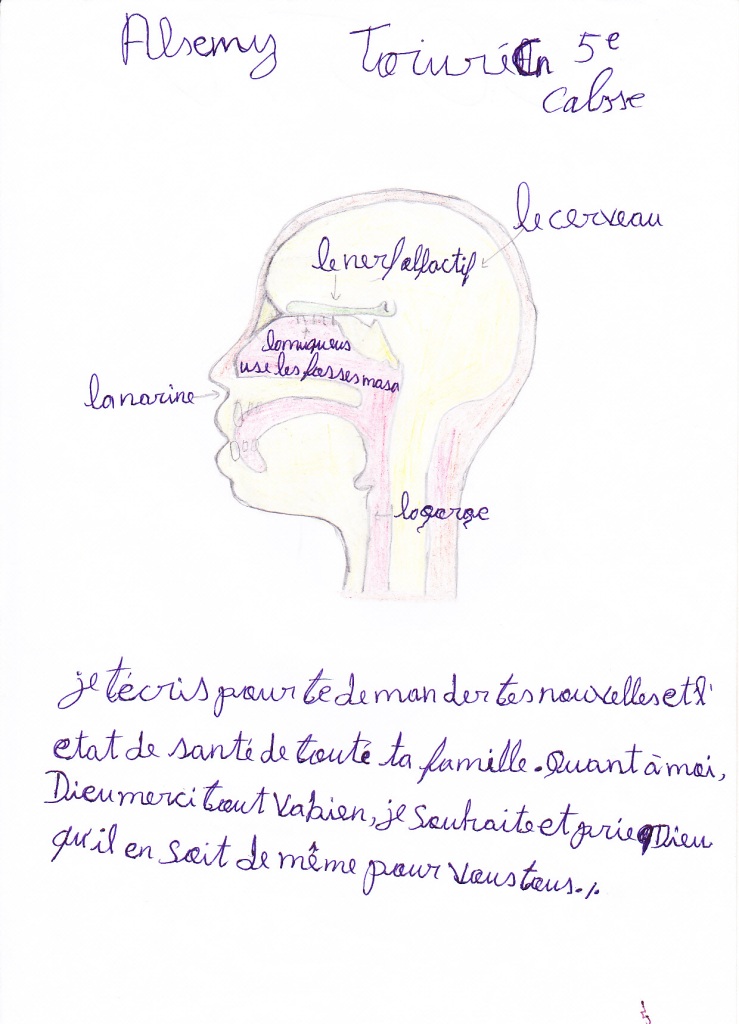 Alsemy Toiuré En 5e
Calsse
le cerveau
le nerf olfactif
lomuqueus
use les fosses masa
la narine
la garge
je t'écris pour te demander tes nouvelles et l'
etat de santé de touté ta famille. Quant à moi,
Dieu merci tout va bien, je souhaite et prie Dieu
qu'il en soit de même pour vous tous./.